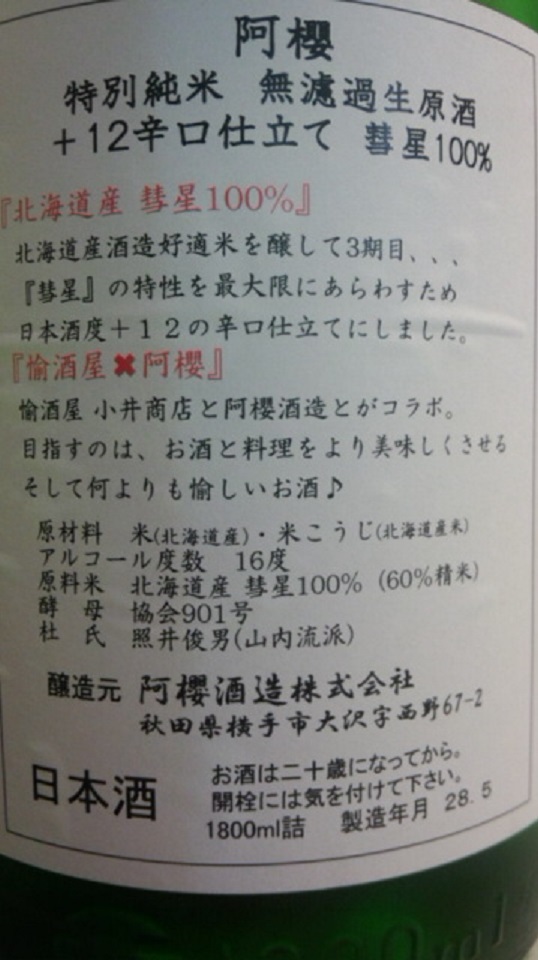 阿櫻
特別純米 無濾過生原酒
＋12辛口仕立て 彗星100%
『北海道産 彗星100%』
北海道産酒造好適米を醸して3期目、、、
『彗星』の特性を最大限にあらわすため
日本酒度＋１２の辛口仕立てにしました。
『愉酒屋✖阿櫻』
愉酒屋 小井商店と阿櫻酒造とがコラボ。
目指すのは、お酒と料理をより美味しくさせる
そして何よりも愉しいお酒♪
原材料 米(北海道産)・米こうじ(北海道産米)
アルコール度数 16度
原料米 北海道産 彗星100% (60%精米)
酵 母 協会901号
杜 氏 照井俊男(山内流派)
醸造元 阿櫻酒造株式会社
秋田県横手市大沢字西野67-2
日本酒
お酒は二十歳になってから。
開栓には気を付けて下さい。
1800ml詰 製造年月 28.5